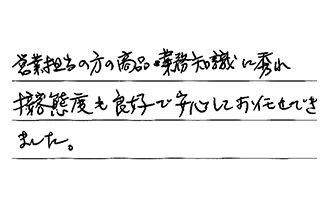 営業担当の方の商品・業務知識に秀れ
接客態度も良好で安心してお任せでき
ました。